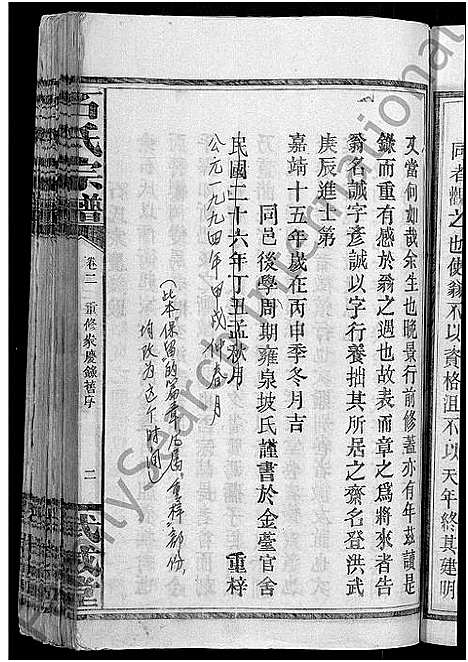 同者觀之也使翁不以資格沮不以天年終其建明
又當何如哉余生也晚景行前修蓋亦有年茲讀是
錄而重有感於翁之過也故表而章之爲將來者告
翁名誠字彥誠以字行養拙其所居之齋名登洪武
庚辰進士第
嘉靖十五年歲在丙申季冬月吉
同邑後學周期雍泉坡氏謹書於金臺官舍
民國二十六年丁丑孟秋月 重梓
公元一九九四年甲戌仲春月
(此本保留的篇章凡屬"重梓"部份,
均改为这个时间)
石氏宗譜
卷二 重修衆慶錄舊序 二
武威堂
mySearchInternational